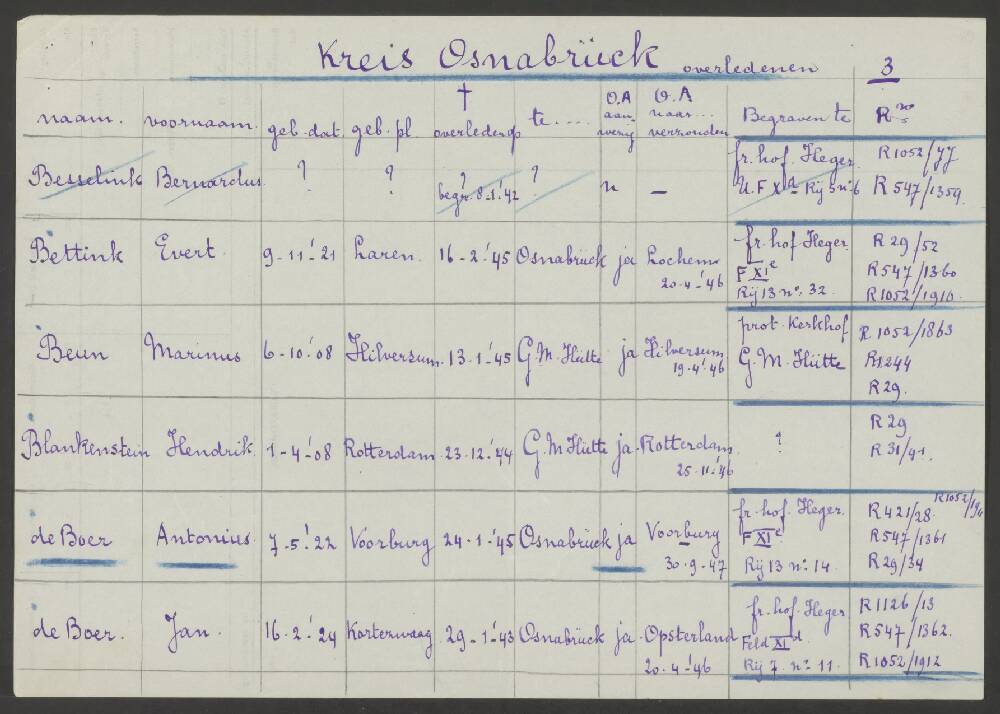 Kreis Osnabrück overledenen 3
naam. voornaam. geb. dat. geb. pl. † overleden op te .... O.A aanwezig O.A naar... verzonden Begraven te R no
Besselink Bernardus ? ? ? ? n — fr. hof. Heger. R1052/77
begr. 8-1-'42 Rij 5 no 6 R 547/1359.
Bettink Evert 9-11-'21 Laren. 16-2-'45 Osnabrück ja Lochem fr. hof Heger. R 29/52
F XI e R547/1360
20-4-'46 Rij 13 no. 32. R1052/1910.
Beun Marinus 6-10-'08 Hilversum. 13-1-'45 G.M. Hütte ja Hilversum prot. Kerkhof R.1052/1863
19-4-'46 G.M. Hütte R1244
R29.
Blankenstein Hendrik. 1-4-'08 Rotterdam. 23-12-'44 G.M Hütte ja. Rotterdam ? R29
25-11-'46 R31/41.
de Boer Antonius. 7-5-'22 Voorburg 24-1-'45 Osnabrück ja Voorburg fr. hof. Heger. R421/28.
F XI e R547/1361
30-9-'47 Rij 13 no. 14. R29/34
de Boer. Jan. 16-2-'24 Korterwaag 29-1-'43 Osnabrück ja Opsterland fr. hof. Heger R1126/13
Feld XI d. R547/1362.
20-4-'46 Rij 7 no. 11. R1052/1912